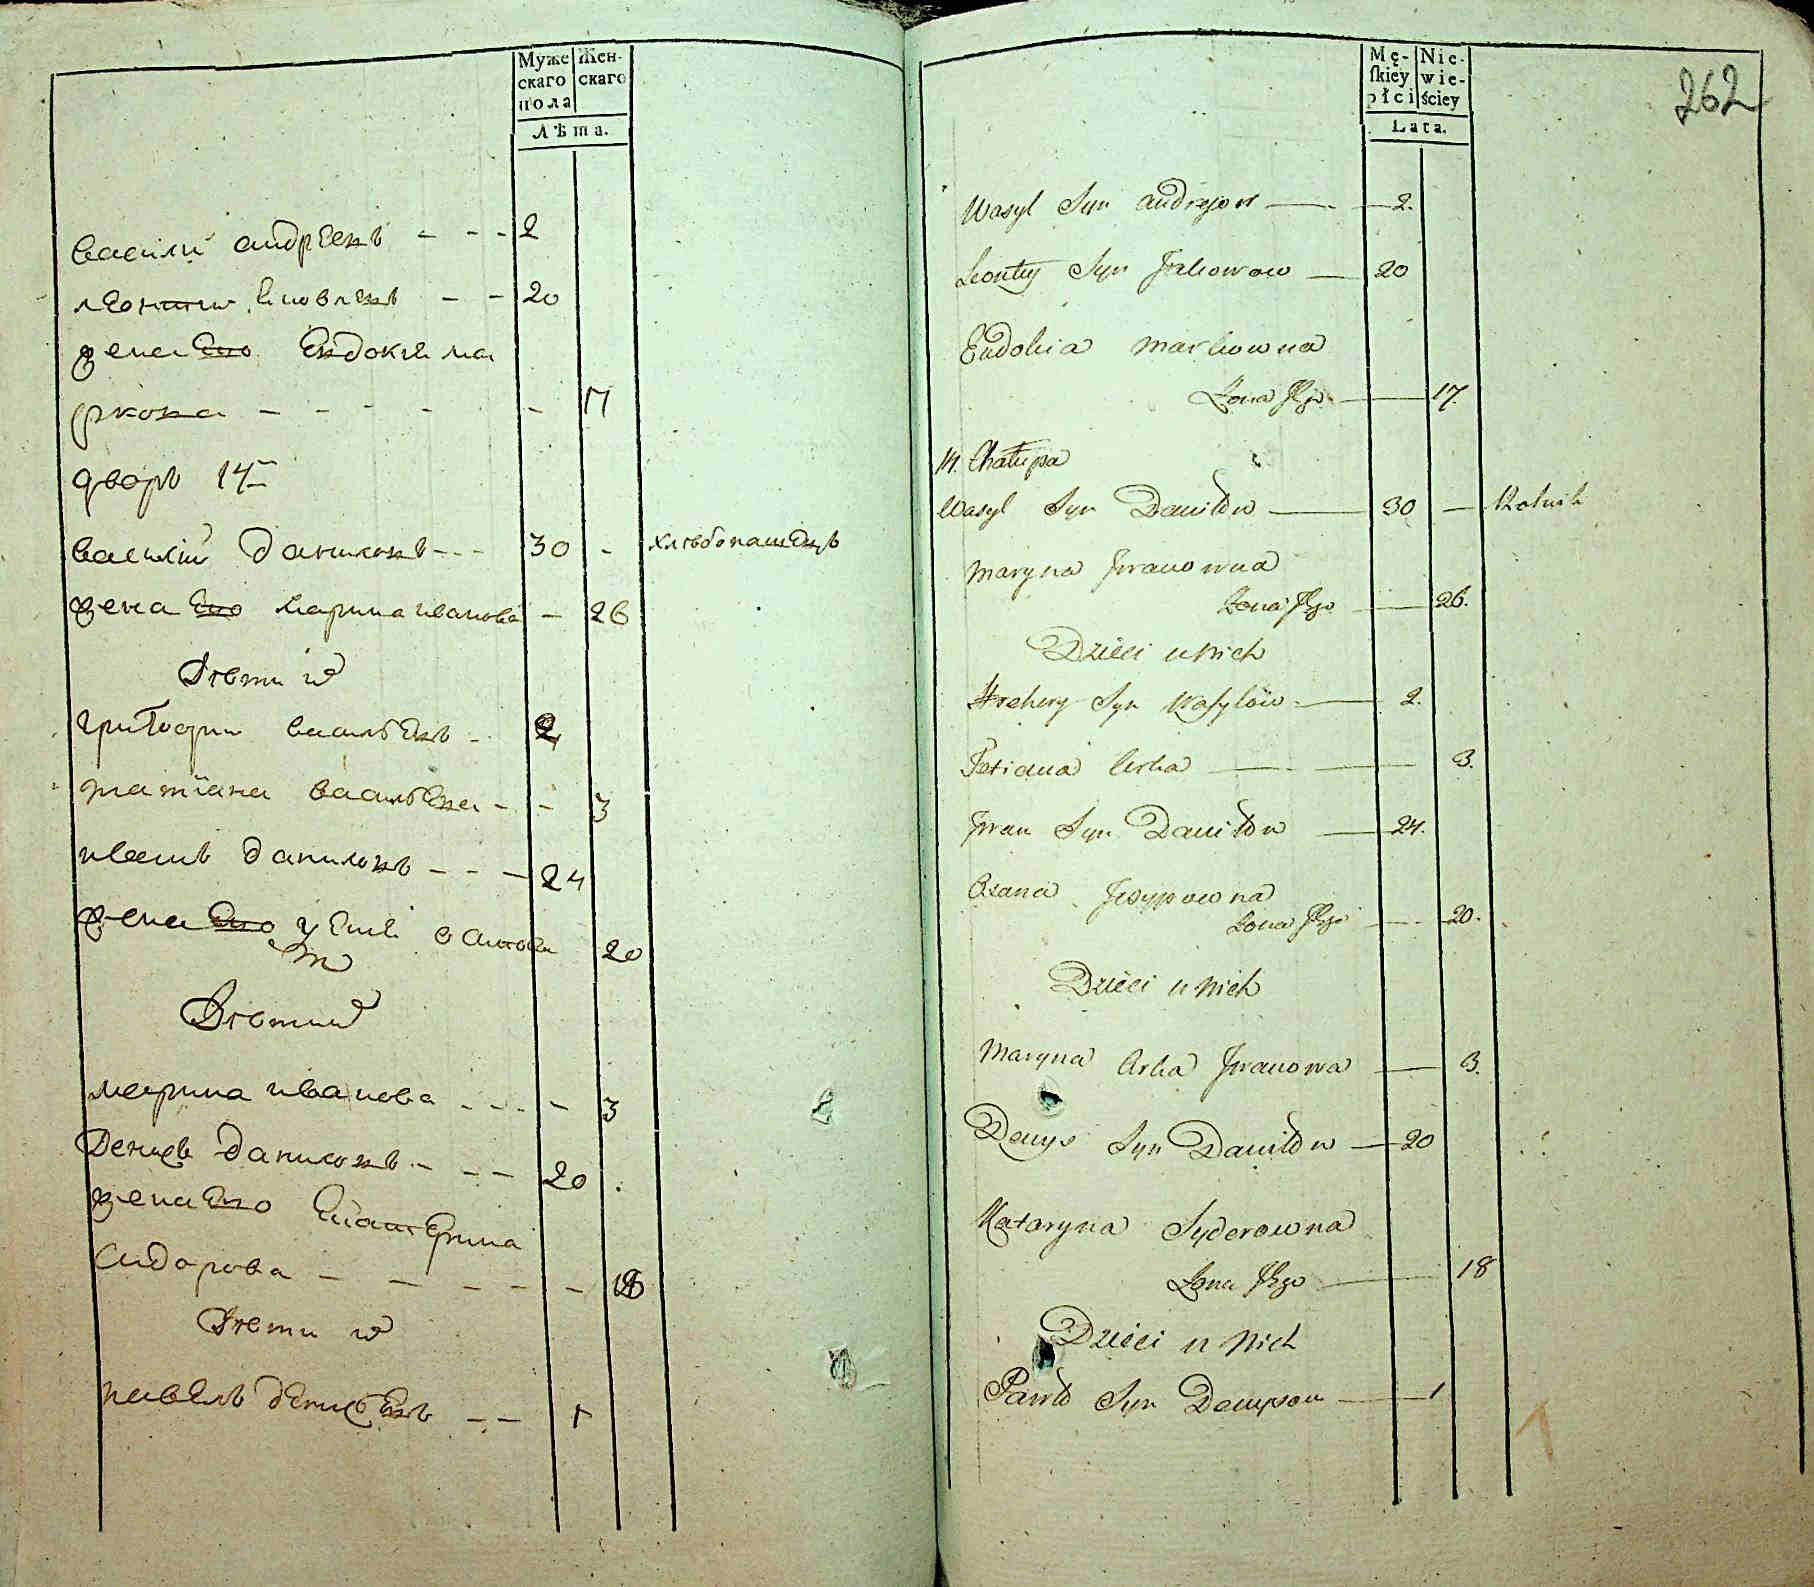 Муже
скаго
пола
Жен-
скаго
Лѣта.
василий андреевъ - - - 2
леонтий яковлевъ - - 20
жена Ево Евдокия ма
ркова - - - - - 17
дворъ 14й
василий даниловъ - - - 30 - хлебопашецъ
жена Ево марина иванова - 26
Дѣти их
григории васильевъ - 2
татиана васильева - - 3
иванъ даниловъ - - - 24
жена Ево 20
Дѣти их
марина иванова - - - - 3
Денисъ даниловъ - - - 20
жена Ево Екатерина
Сидорова - - - - - 18
Дѣти их
павелъ денисовъ - - 1
262
Mę-
ſkiey
płci
Nie-
wie-
ściey
Lata.
Wasyl Syn Andrejow — 2.
Leonty Syn Jakowow — 20
Eudokia Markowna
Zona Jego — 17.
14. Chałupa
Wasyl Syn Daniłow — 30 — Rolnik
Maryna Jwanowna
Zona Jego — 26.
Dzieci u Nich
Hrehory Syn Wasylów — 2.
Tetiana Corka — 3.
Jwan Syn Daniłow — 24.
Oxana Josypowna
Zona Jego — 20.
Dzieci u Nich
Maryna Corka Jwanowa — 3.
Denys Syn Daniłow — 20
Kataryna Syderowna
Zona Jego — 18
Dzieci u Nich
Pawło Syn Denysow — 1